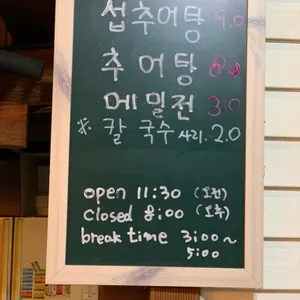 섭추어탕 9.0
추어탕 8.0
메밀전 3.0
※ 칼국수 사리. 2.0
open 11:30 (오전)
closed 8:00 (오후)
break time 3:00~
5:00